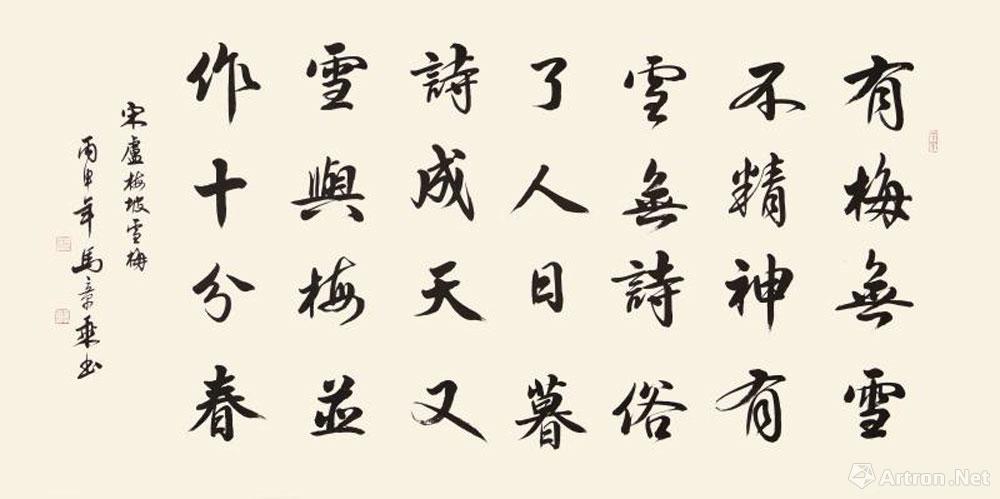 有梅無雪
不精神有
雪無詩俗
了人日暮
詩成天又
雪與梅並
作十分春
宋盧梅坡雪梅
丙申年馬章乘书
Artron.Net